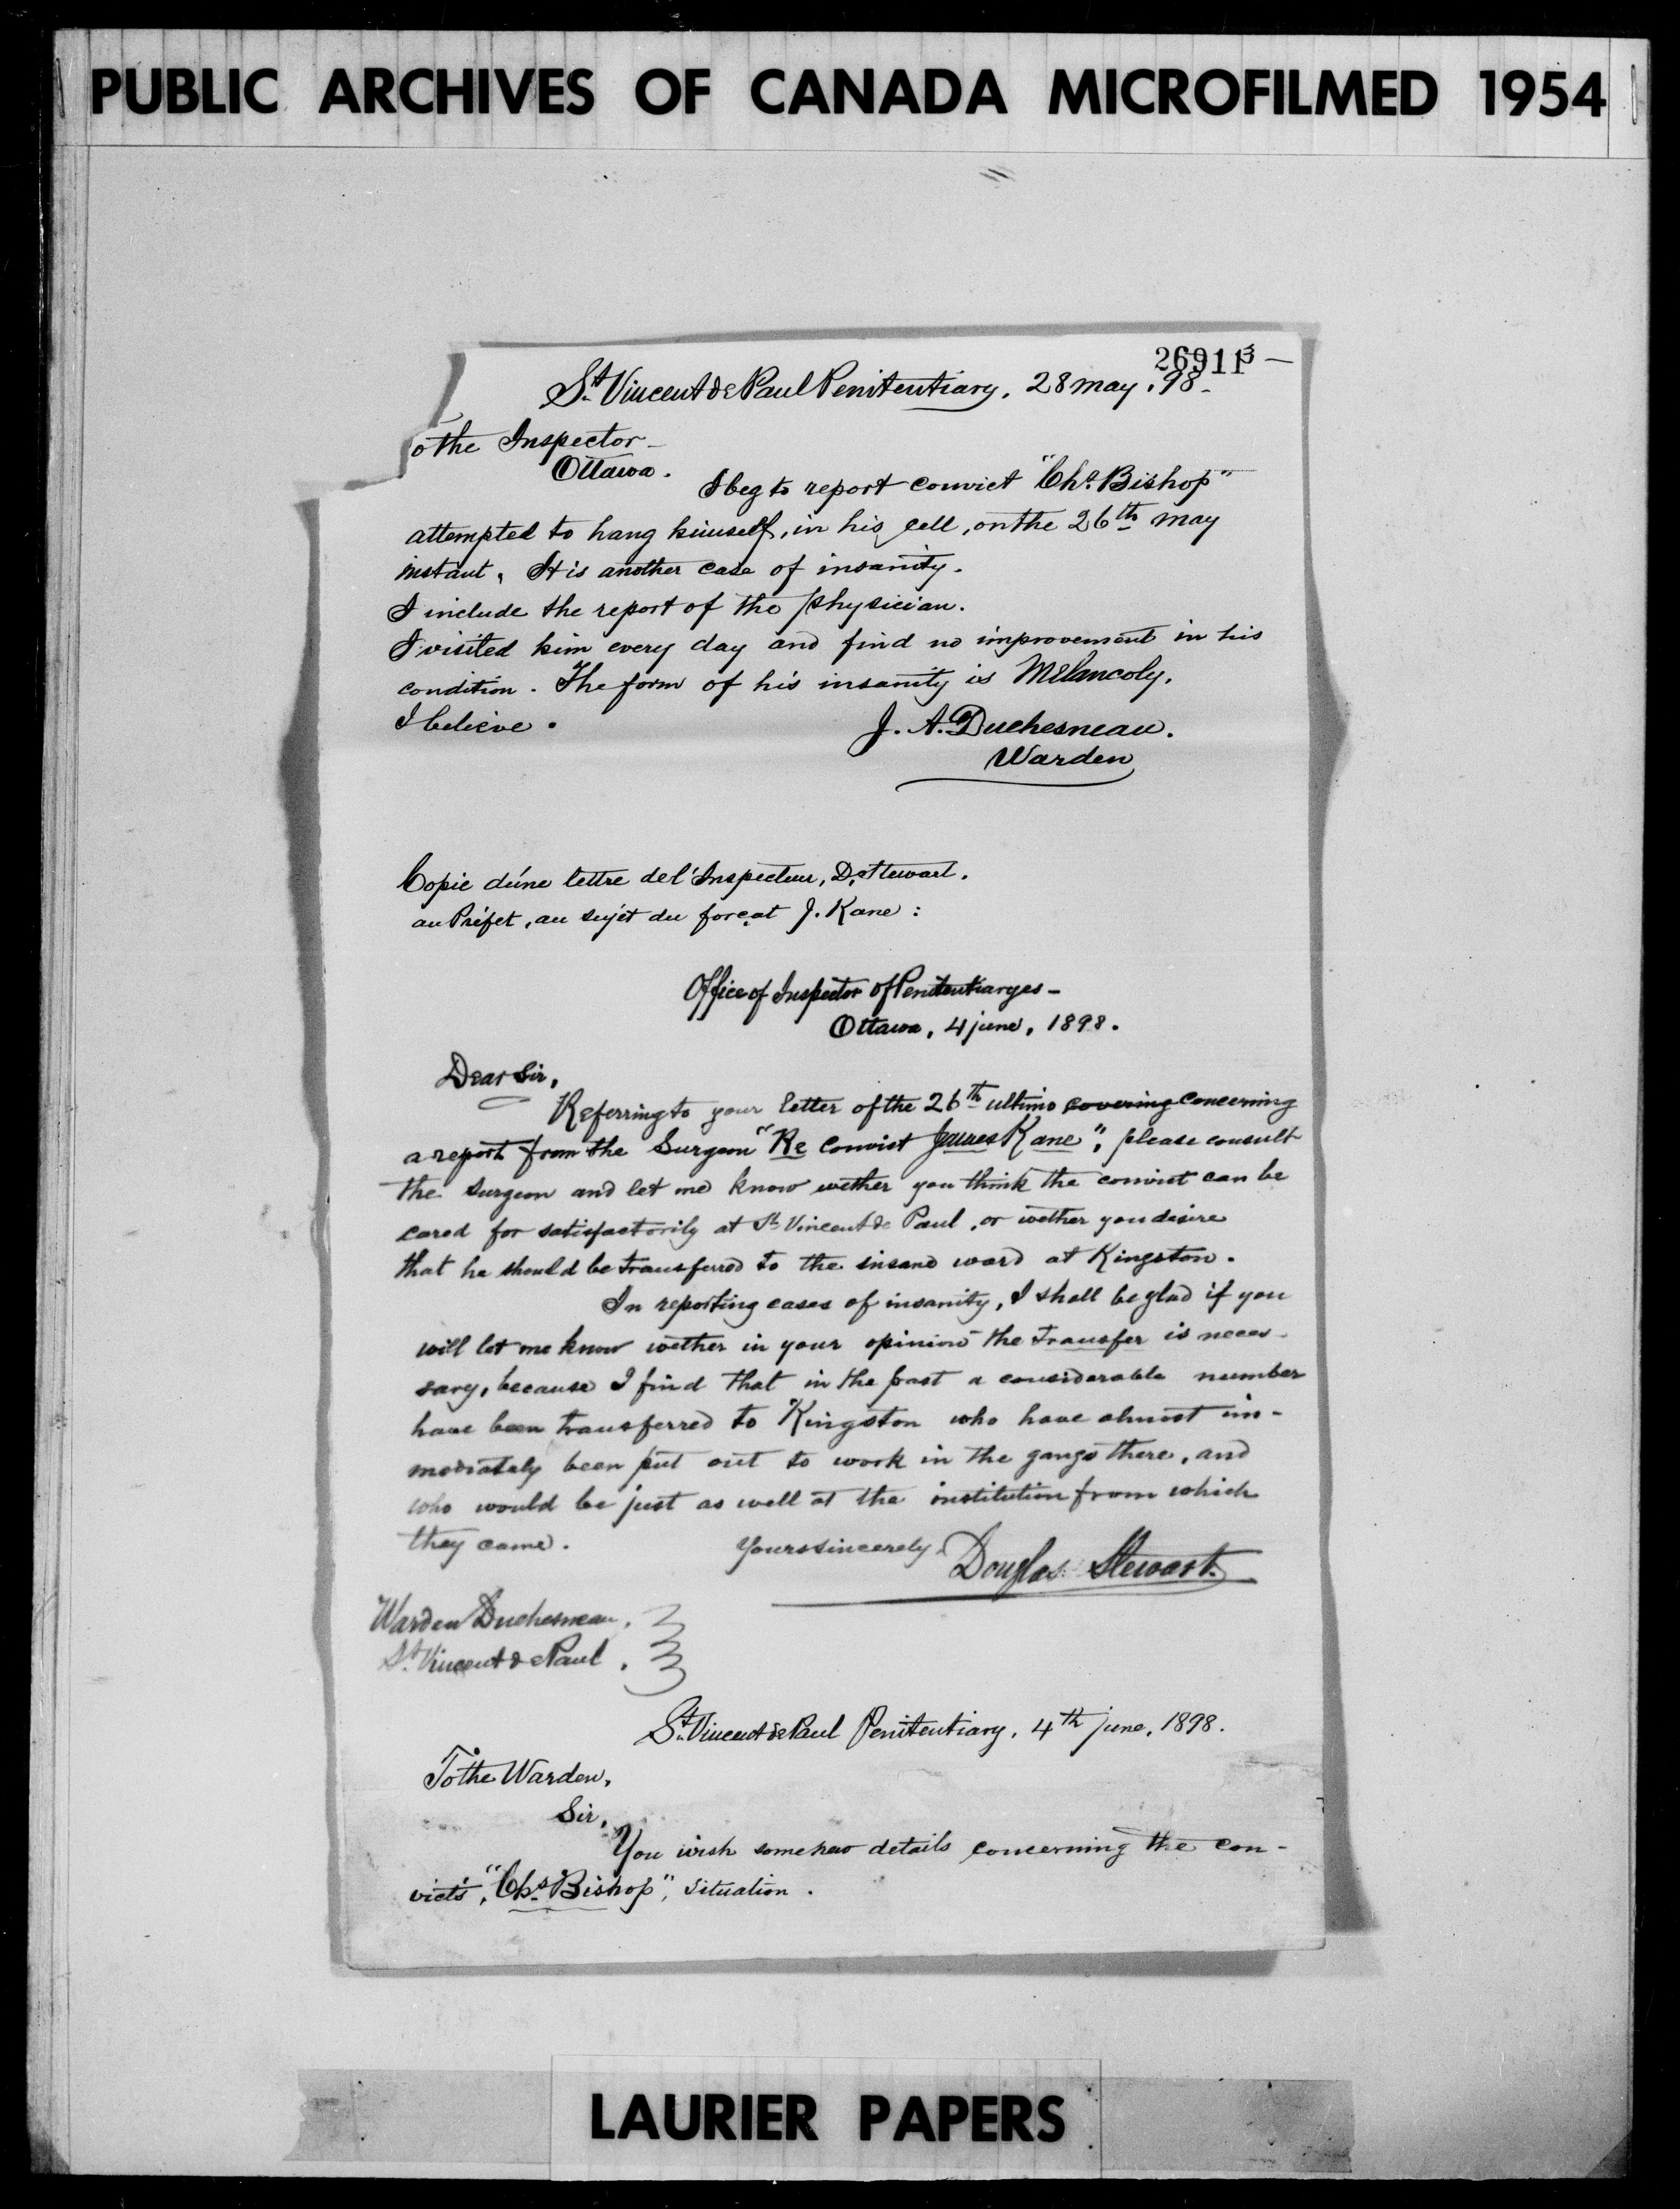 PUBLIC ARCHIVES OF CANADA MICROFILMED 1954
26911 3 —
St Vincent de Paul Penitentiary, 28 may, 98 -
o the Inspector -
Ottawa.
I beg to report convict "Chs Bishop"
attempted to hang himself, in his cell, on the 26th may
instant. It is another case of insanity.
I include the report of the physician.
I visited him every day and find no improvement in his
condition. The form of his insanity is Melancoly,
I believe.
J. A. Duchesneau.
Warden
Copie d'une lettre de l'Inspecteur, D. Stewart.
au Préfet, au sujet du forçat J. Kane :
Office of Inspector of Penitentiaryes -
Ottawa, 4 june, 1898.
Dear Sir,
Referring to your letter of the 26th ultimo covering concerning
a report from the Surgeon "Re Convict James Kane", please consult
the surgeon and let me know wether you think the convict can be
cared for satisfactorily at St Vincent de Paul, or wether you desire
that he should be transferred to the insane ward at Kingston.
In reporting cases of insanity, I shall be glad if you
will let me know wether in your opinion the transfer is neces-
sary, because I find that in the past a considerable number
have been transferred to Kingston who have almost im-
mediately been put out to work in the gangs there, and
who would be just as well at the institution from which
they came.
Yours sincerely,
Douglas Stewart.
Warden Duchesneau,
St. Vincent de Paul.
St. Vincent de Paul Penitentiary, 4th june, 1898.
To the Warden,
Sir,
You wish some new details concerning the con-
vict's, "Chs Bishop", situation.
LAURIER PAPERS